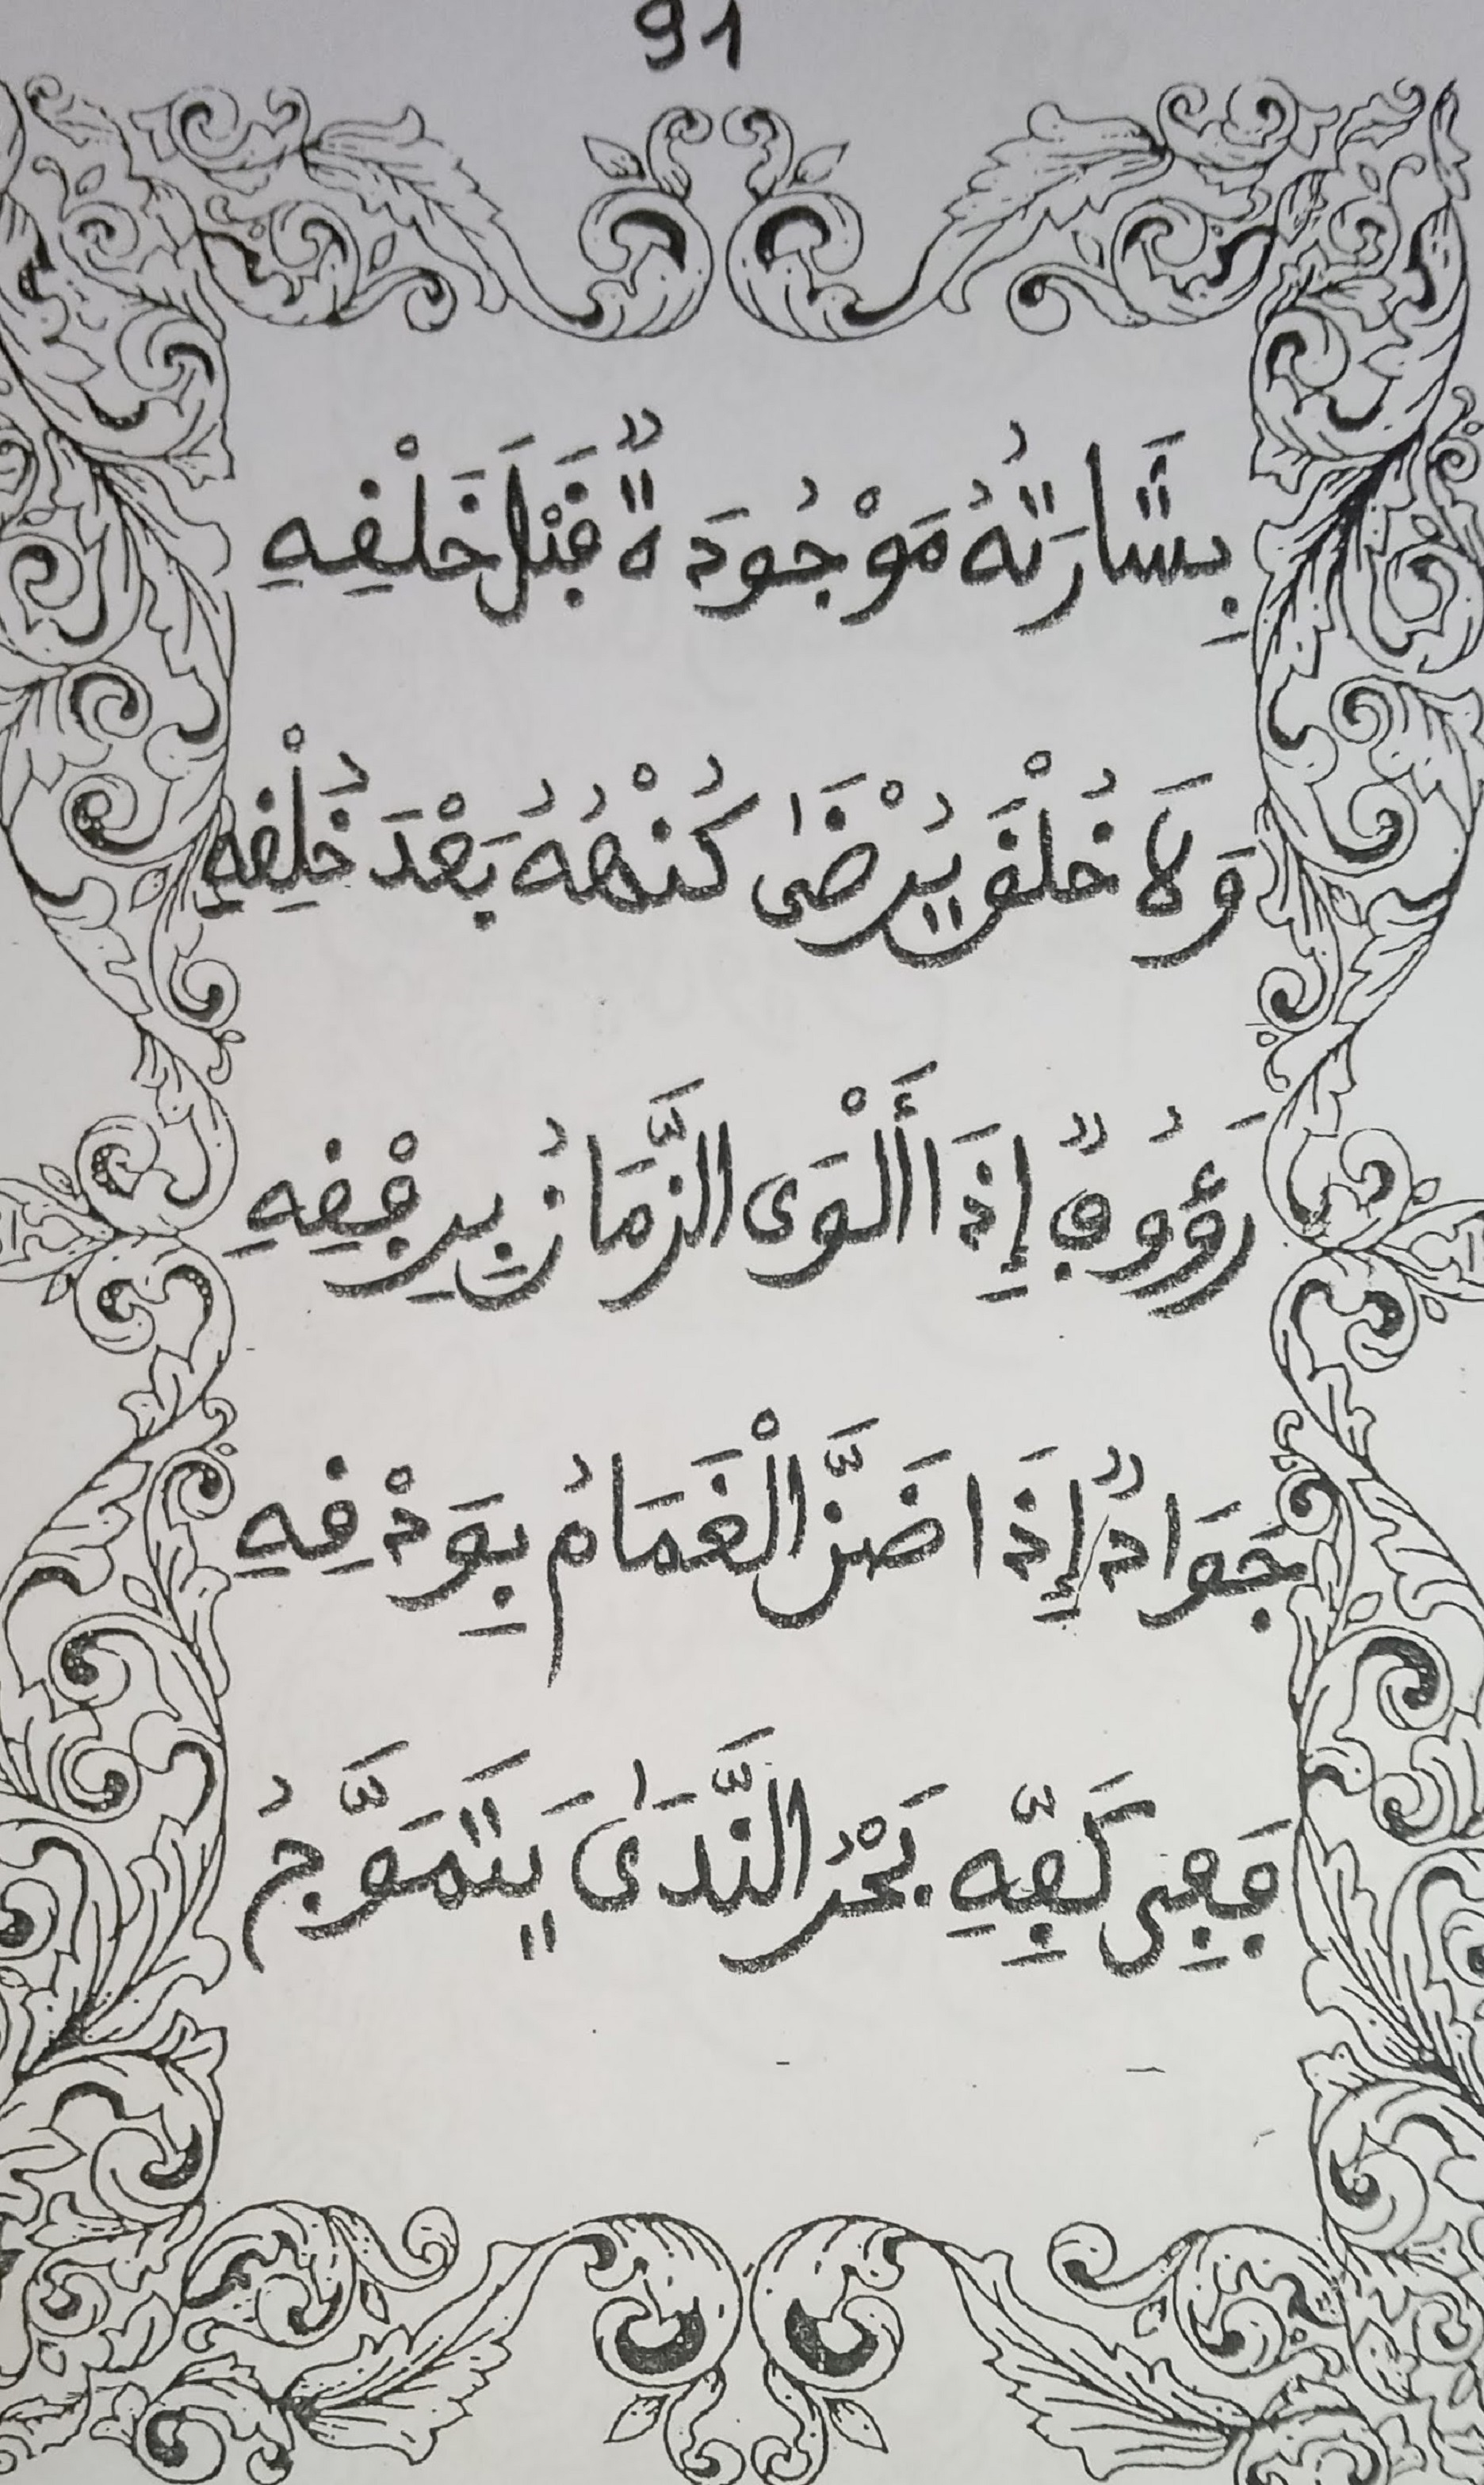 91
بِشَارَتُهُ مَوْجُودَةٌ قَبْلَ خَلْقِهِ
وَلَا خُلْقَ يُرْضَىٰ كُنْهُهُ بَعْدَ خُلْقِهِ
رَؤُوفٌ إِذَا أَلْوَى الزَّمَانُ بِرِفْقِهِ
جَوَادٌ إِذَا ضَنَّ الْغَمَامُ بِوَدْقِهِ
فَفِي كَفِّهِ بَحْرُ النَّدَىٰ يَتَمَوَّجُ